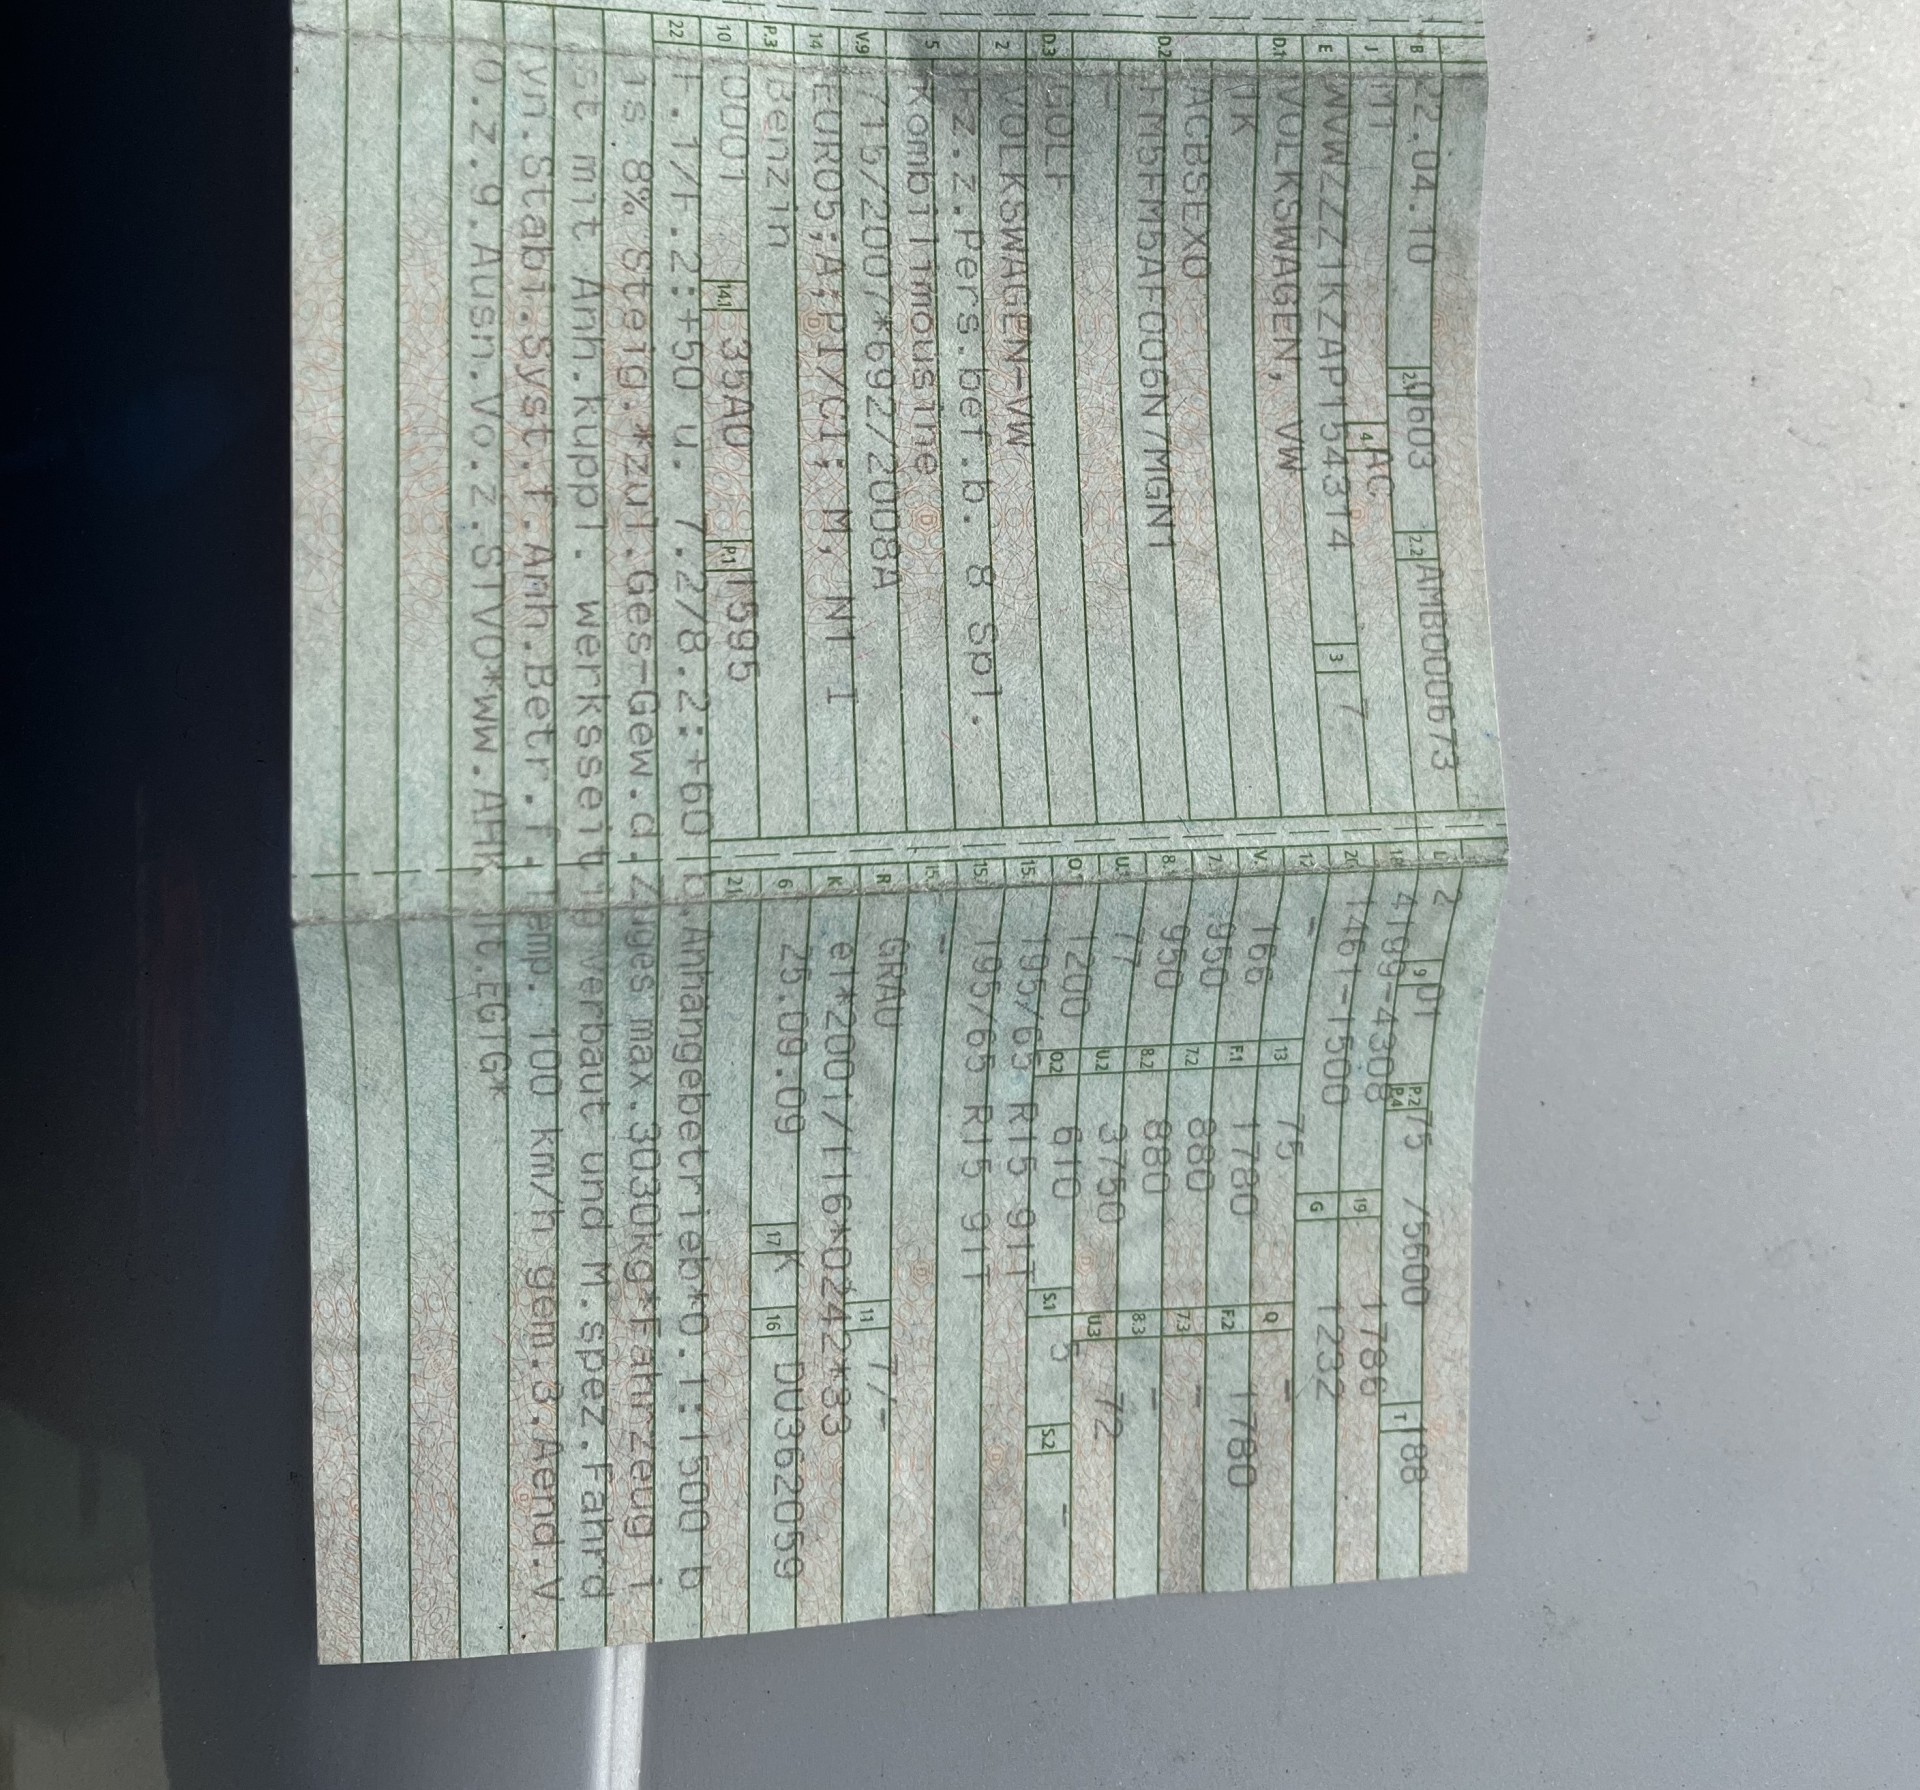 B 22.04.10 2.1 0603 2.2 AMB000673
J M1 4 AC
E WVWZZZ1KZAP154314 3 7
D.1 VOLKSWAGEN, VW
D.2 1K
ACBSEX0
FM5FM5AF006N7MGN1
D.3 GOLF
2 VOLKSWAGEN-VW
Fz.z.Pers.bef.b. 8 Spl.
5 Kombilimousine
V.9 715/2007*692/2008A
14 EURO5;A;PI/CI; M, N1 I
P.3 Benzin
10 0001 14.1 35A0 P.1 1595
L 2 9 01 P.2 P.4 75 /5600 T 188
18 4199-4308 19 1786
20 1461-1500 G 1232
12 - 13 75 Q -
V. 166 F.1 1780 F.2 1780
7. 950 7.2 880 7.3 -
8. 950 8.2 880 8.3 -
U. 77 U.2 3750 U.3 72
O. 1200 O.2 610 S.1 5 S.2 -
15. 195/65 R15 91T
15. 195/65 R15 91T
15. -
R GRAU 11 7/-
K e1*2001/116*0242*33
6 25.09.09 17 K 16 DU362059
21
22 F.1/F.2:+50 u. 7.2/8.2:+60 b.Anhängebetrieb*O.1:1500 b
is 8% Steig.*zul.Ges-Gew.d.Zuges max.3030kg*Fahrzeug i
st mit Anh.kuppl. werksseitig verbaut und M.spez.Fahrd
yn.Stabi.Syst.f.Anh.Betr.f. Temp. 100 km/h gem.3.Aend.V
O.z.9.Ausn.Vo.z.STVO*ww.AHK lt.EGTG*